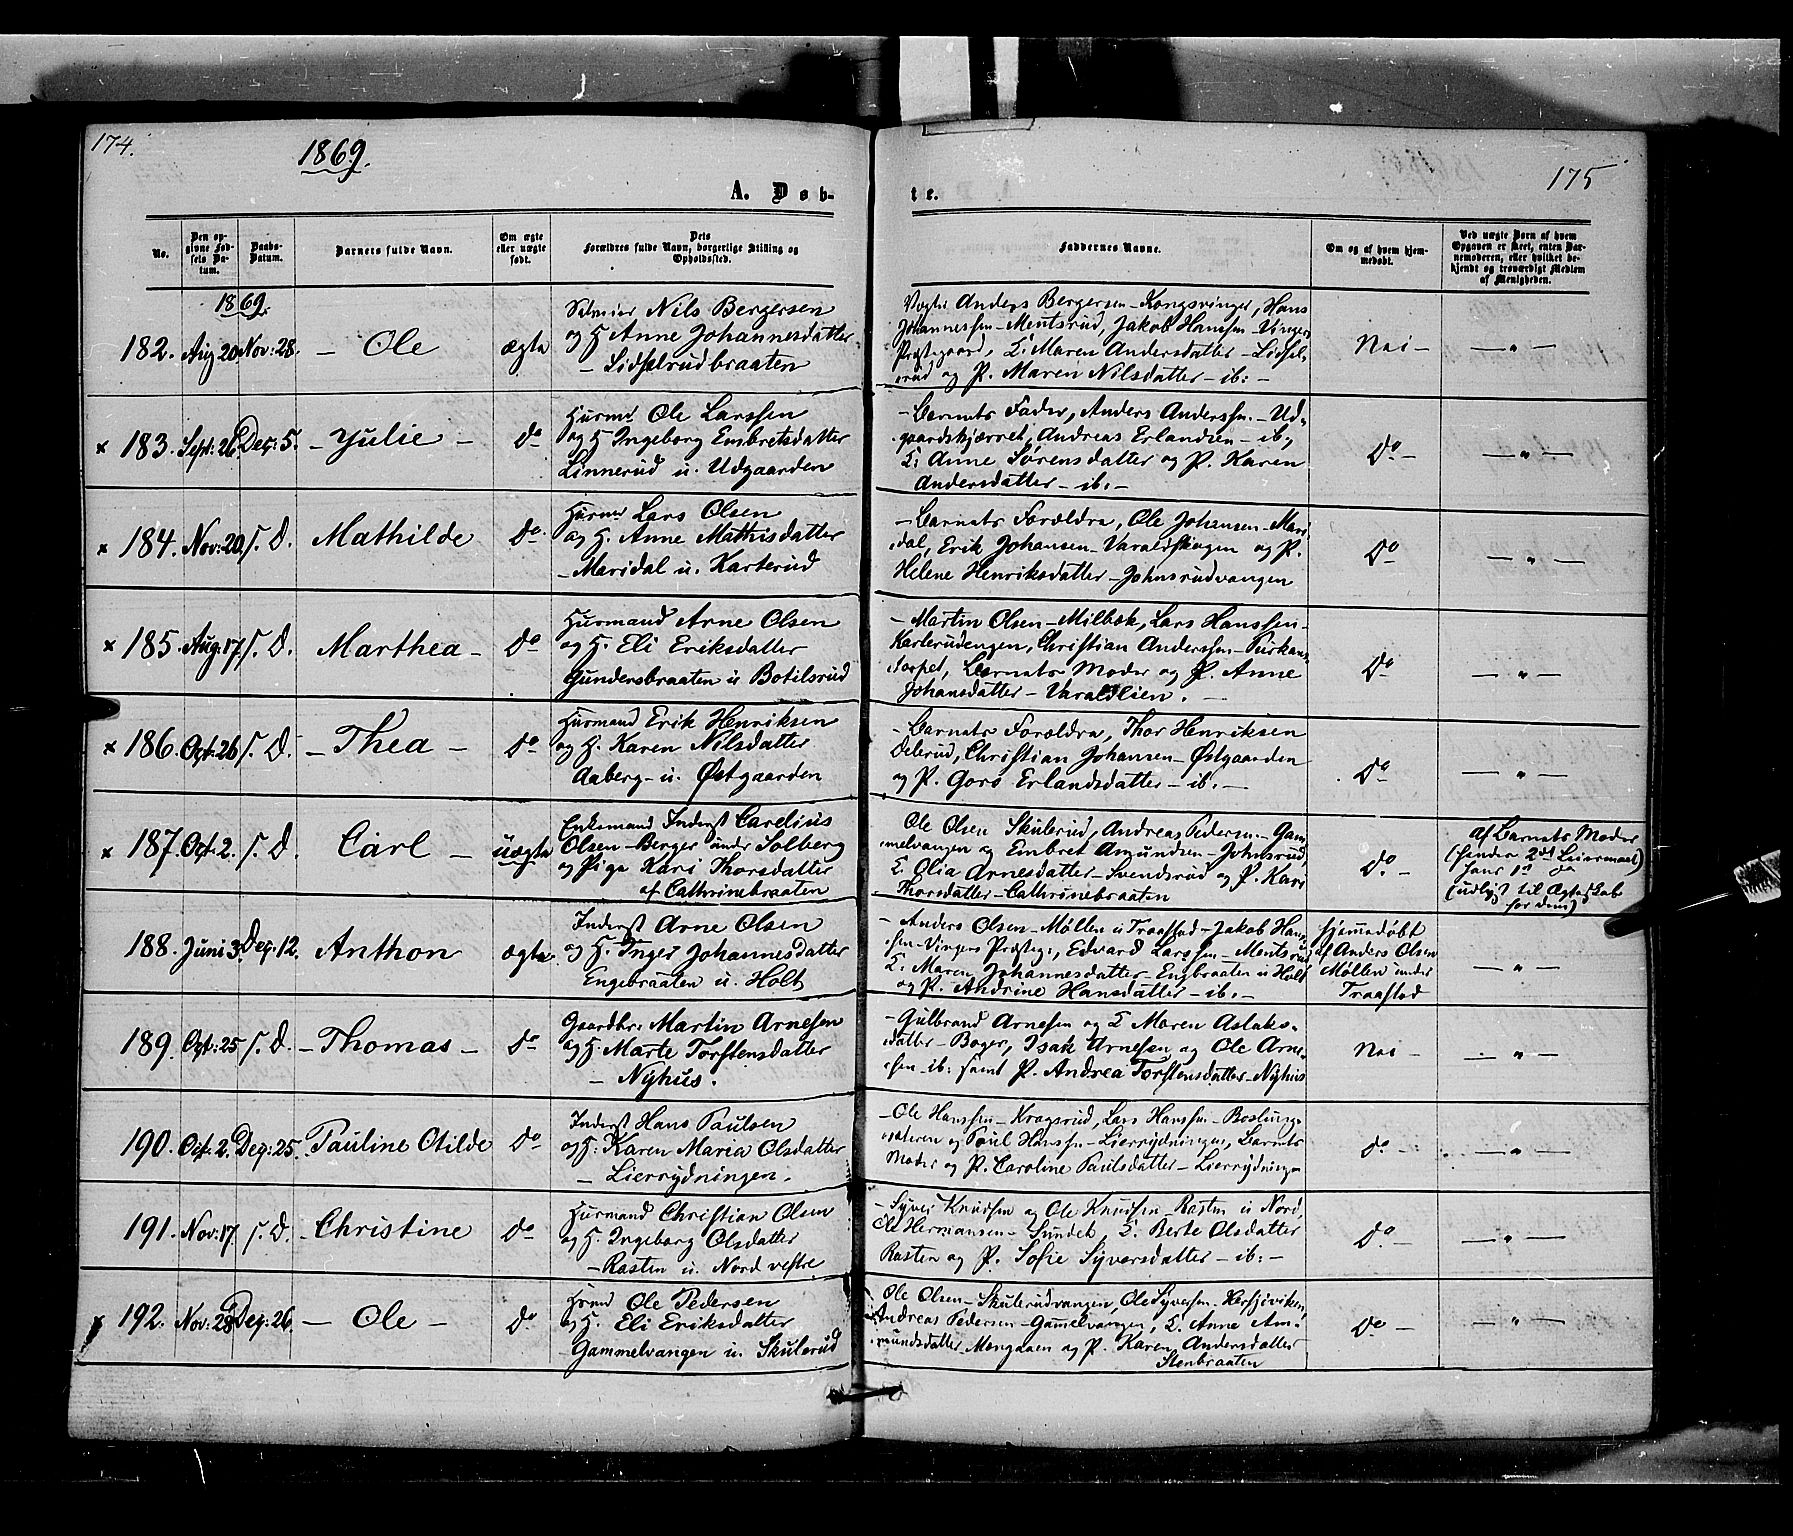 174.
1869.
175
A. Døb-
te.
No.
Den op-
givne Fød-
sels Da-
tum.
Daabs-
Datum.
Barnets fulde Navn.
Om ægte
eller uægte
født.
Dets
Forældres fulde Navn, borgerlige Stilling og
Opholdssted.
Faddernes Navne.
Om og af hvem hjem-
medøbt.
Ved uægte Børn af hvem
Opgaven er skeet, enten Bar-
nemoderen, eller hvilket be-
kjendt og troværdigt Medlem
af Menigheden.
1869.
182. Aug 20 Nov: 28. – Ole ægte
Nils Bergersen
og H. Anne Johannesdatter
– Lidselrudbraaten
Anders Bergersen – Kongsvinger, Hans
Johannessen – Mentsrud, Jakob Hanssen – Vinger
Præstegaard, Maren Andersdatter – Lidsel-
rud og P. Maren Nilsdatter – ib: –
Nei – – " –
x 183. Sept: 26 Dec: 5. – Julie – do
Hurmd Ole Larssen
og H Ingeborg Embretsdatter
Linnerud u. Udgaarden
– Barnets Fader, Anders Anderssen – Ud-
gaardskjærret, Andreas Erlandsen – ib,
Anne Sørensdatter og P. Karen
Andersdatter – ib. –
Do – – " –
x 184. Nov: 20. s. D. Mathilde do
Hurmd Lars Olsen
og H. Anne Mathisdatter
– Maridal u. Karterud
– Barnets Forældre, Ole Johansen – Mari
dal, Erik Johansen – Varaldskogen og P.
Helene Henriksdatter – Johnsrudvangen
Do – " –
x 185. Aug: 17. s. D. Marthea – do
Hurmand Arne Olsen
og H. Eli Eriksdatter
Gundersbraaten u Botilsrud
– Martin Olsen – Milbæk, Lars Hanssen –
Karterudengen, Christian Anderssen –
torpet, Barnets Moder og P. Anne
Johansdatter – Varaldlien. –
Do – – " –
x 186. Oct: 26 s. D. – Thea – do
Hurmand Erik Henriksen
og H. Karen Nilsdatter
Aaberg – u. Østgaarden
– Barnets Forældre, Thor Henriksen
Christian Johansen – Østgaarden
og P. Goro Erlandsdatter – ib. –
Do – " –
x 187. Oct: 2. s. D. Carl – uægte
Enkemand Inderst Carelius
Olsen – Berger under Solberg
og Pige Kari Thorsdatter
af Cathrinebraaten
Ole Olsen Skulerud, Andreas Pedersen – Gam-
melvangen og Embret Amundsen – Johnsrud,
Olia Arnesdatter – Svendsrud og P. Kari
Thorsdatter – Cathrinebraaten
Do. –
af Barnets Moder
(hendes 2det Leiermaal)
hans 1ste
(udlyst til Ægteskab
for dem)
188. Juni 3. Dec: 12. Anthon ægte
Inderst Arne Olsen
og H. Inger Johannesdatter
Engebraaten u. Holt
– Anders Olsen – Møllen u Traastad – Jakob Hans-
sen – Vingers Præsteg:, Edvard Larssen – Mentsrud
Maren Johannesdatter – Engbraaten u Holt
og P. Andrine Hansdatter – ib. –
hjemmedøbt
af Anders Olsen
Møllen under
Traastad
– " –
189. Oct: 25 s. D. – Thomas – do
Gaardbr: Martin Arnesen
og H. Marte Torstensdatter
– Nyhus.
– Gulbrand Arnesen og Maren Aslaks-
datter – Boger, Isak Arnesen og Ole Arne-
sen ib: samt P. Andrea Torstensdatter – Nyhus
Nei – – " –
190. Oct: 2. Dec: 25. Pauline Otilde do
Inderst Hans Paulsen
og H: Karen Maria Olsdatter
– Lierrydningen.
– Ole Hanssen – Kragsrud, Lars Hanssen –
og Poul Hanssen – Lierrydningen, Barnets
Moder og P. Caroline Paulsdatter – Lierrydninge
do – – " –
191. Nov: 17. s. D. – Christine do
Hurmand Christian Olsen
og H. Ingeborg Olsdatter
– Rasten u. Nord vestre
– Syver Knudsen og Ole Knudsen – Rasten u Nord,
Ole Hermansen – Sundet, Berte Olsdatter
Rasten og P. Sofie Syversdatter – ib: –
Do – – " –
x 192. Nov: 28 Dec: 26. – Ole – do
Hrmd Ole Pedersen
og H. Eli Eriksdatter
Gammelvangen u. Skulerud
Ole Olsen – Skulerudvangen, Ole Syversen –
Andreas Pedersen – Gamelvangen, Anne Am-
mundsdatter og P. Karen Andersdatter
Stenbraaten
Do – – " –